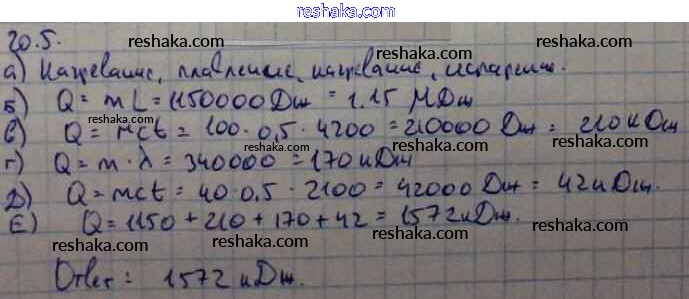 reshaka.com
20.5.
reshaka.com reshaka.com
а) Нагревание, плавление, нагревание, испарение.
reshaka.com
б) Q = mL = 1150000 Дж = 1.15 МДж
reshaka.com reshaka.com
в) Q = mct = 100 · 0,5 · 4200 = 210000 Дж = 210 кДж
reshaka.com
г) Q = m · λ = 340000 = 170 кДж
reshaka.com reshaka.com
Д) Q = mct = 40 · 0.5 · 2100 = 42000 Дж = 42 кДж.
reshaka.com
Е) Q = 1150 + 210 + 170 + 42 = 1572 кДж.
reshaka.com reshaka.com
Ответ: 1572 кДж.
reshaka.com